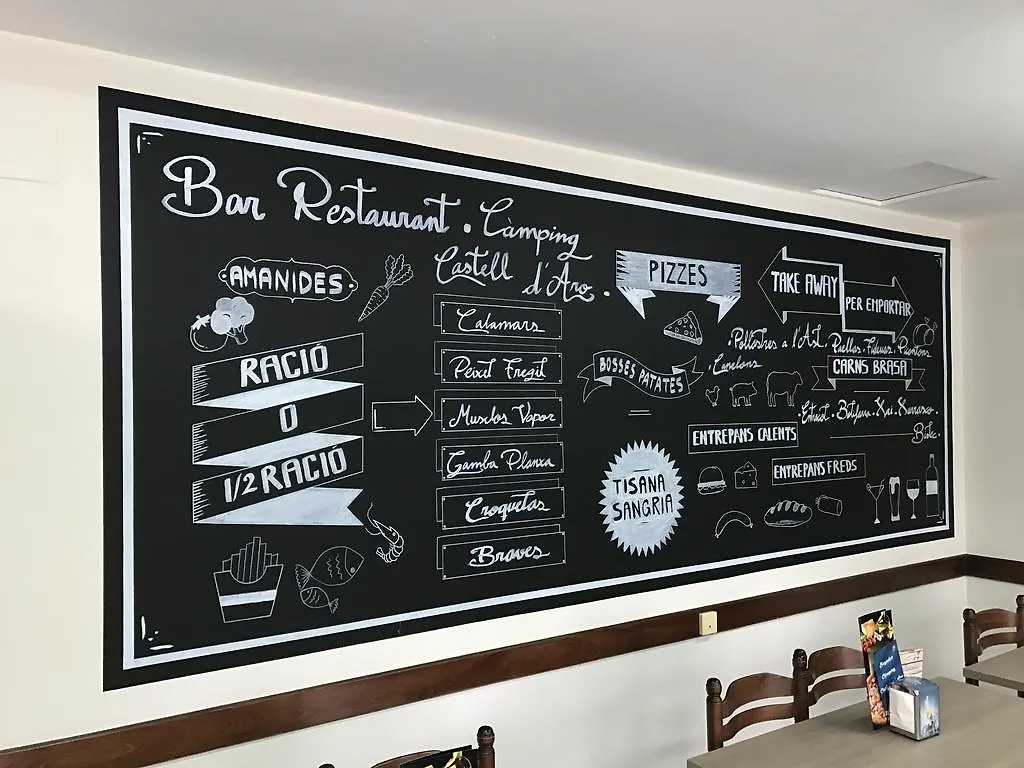 Bar Restaurant . Càmping
Castell d'Aro.
AMANIDES
RACIÓ
O
1/2 RACIÓ
Calamars
Peixet Fregit
Musclos Vapor
Gamba Planxa
Croquetas
Braves
PIZZES
BOSSES PATATES
TISANA
SANGRIA
TAKE AWAY
PER EMPORTAR
·Pollastres a l'Ast.
Paellas·Fideuas·
·Canelons
CARNS BRASA
·Entrecot·Botifarra·Xai·Xurrasco·
Bistec·
ENTREPANS CALENTS
ENTREPANS FREDS